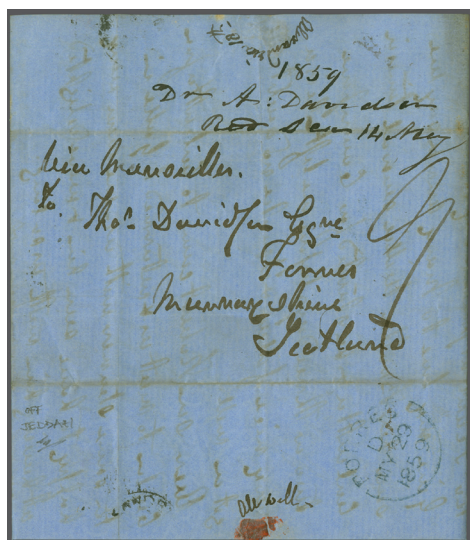 1859
Dr A: Davidson
Red Sea 14 May
Via Marseilles.
To
Thos. Davidson Esqre
Forres
Murrayshire
Scotland
OFF
JEDDAH
FORRES
MY 29
1859
All well